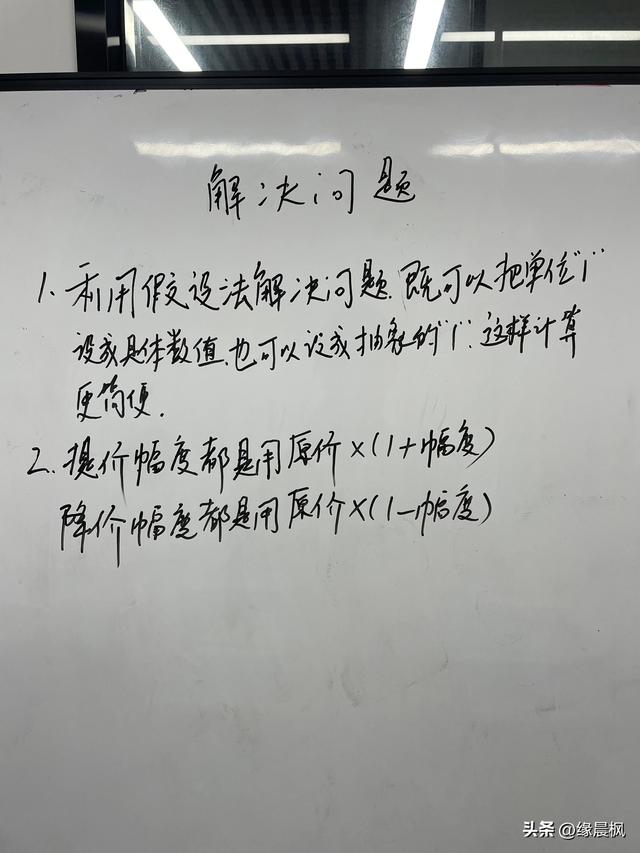 解决问题
1. 利用假设法解决问题.既可以把单位"1"
设成具体数值,也可以设成抽象的"1".这样计算
更简便.
2. 提价幅度都是用原价×(1+幅度)
降价幅度都是用原价×(1-幅度)
头条 @缘晨枫